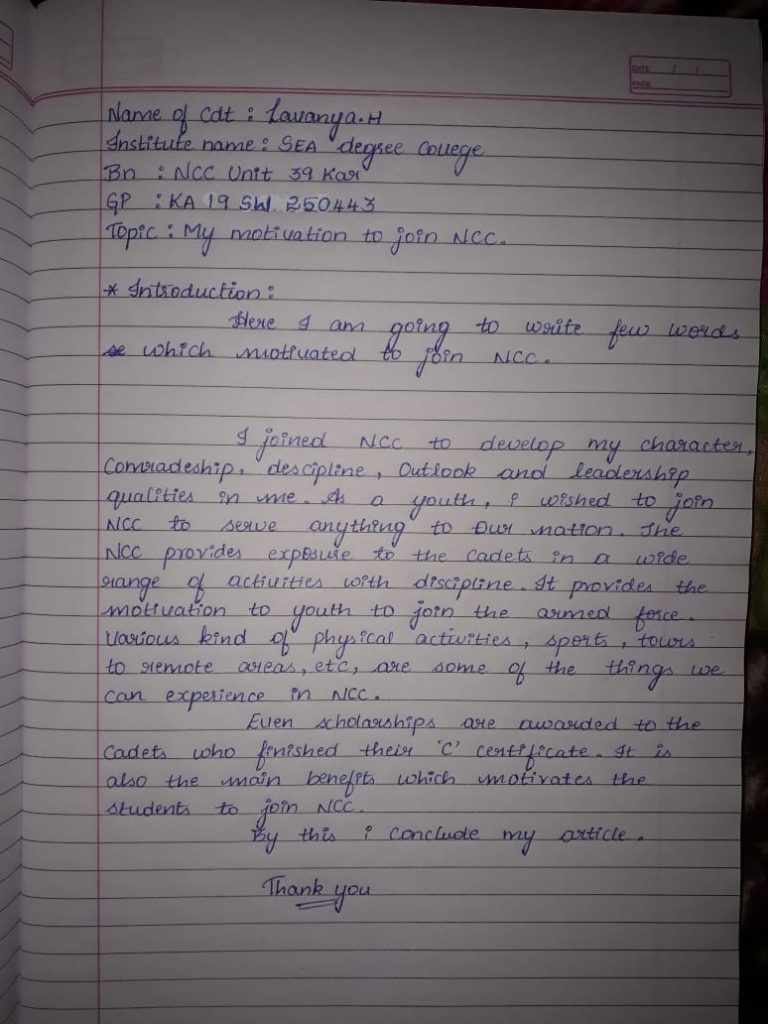 DATE / /
PAGE
Name of Cdt : Lavanya.H
Institute name : SEA degree College
Bn : NCC Unit 39 Kar
GP : KA 19 SW. 250443
Topic : My motivation to join NCC.
* Introduction :
Here I am going to write few words
which motivated to join NCC.
I joined NCC to develop my character,
Comradeship, descipline, Outlook and leadership
qualities in me. As a youth, i wished to join
NCC to serve anything to our nation. The
NCC provides exposure to the cadets in a wide
range of activities with discipline. It provides the
motivation to youth to join the armed force.
Various kind of physical activities, sports, tours
to remote areas, etc, are some of the things we
can experience in NCC.
Even scholarships are awarded to the
cadets who finished their 'C' certificate. It is
also the main benefits which motivates the
students to join NCC.
By this i conclude my article.
Thank you